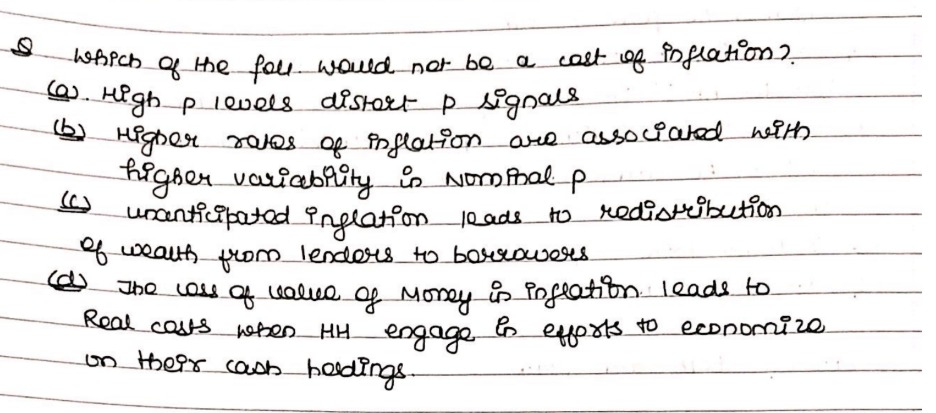 Q Which of the foll. would not be a cost of inflation?
(a). High p levels distort p signals
(b) Higher rates of inflation are associated with
higher variability in Nominal p
(c) unanticipated inflation leads to redistribution
of wealth from lenders to borrowers
(d) The loss of value of Money in inflation leads to
Real costs when HH engage in efforts to economize
on their cash holdings.